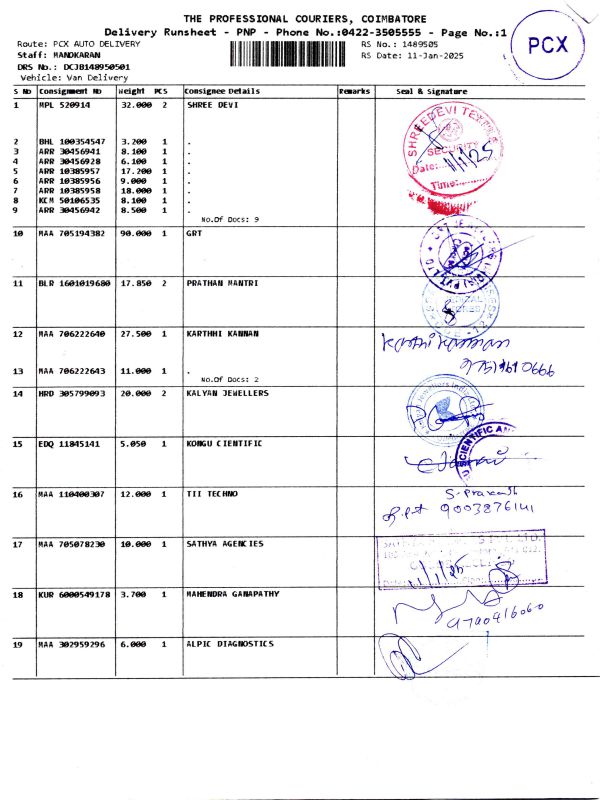 THE PROFESSIONAL COURIERS, COIMBATORE
Delivery Runsheet - PNP - Phone No.:0422-3505555 - Page No.:1
PCX
Route: PCX AUTO DELIVERY RS No.: 1489505
Staff: MANOKARAN RS Date: 11-Jan-2025
DRS No.: DCJB148950501
Vehicle: Van Delivery
S No Consignment No Weight PCS Consignee Details Remarks Seal & Signature
1 MPL 520914 32.000 2 SHREE DEVI
SHREEDEVI TEX
SECURITY
Date: 11/1/25
Time:
2 BHL 100354547 3.200 1 .
3 ARR 30456941 8.100 1 .
4 ARR 30456928 6.100 1 .
5 ARR 10385957 17.200 1 .
6 ARR 10385956 9.000 1 .
7 ARR 10385958 18.000 1 .
8 KCM 50106535 8.100 1 .
9 ARR 30456942 8.500 1 .
No.Of Docs: 9
10 MAA 705194382 90.000 1 GRT
11 BLR 1601019680 17.850 2 PRATHAN MANTRI
12 MAA 706222640 27.500 1 KARTHHI KANNAN
Karthi Kannan
13 MAA 706222643 11.000 1 .
No.Of Docs: 2
14 HRD 305799093 20.000 2 KALYAN JEWELLERS
15 EDQ 11845141 5.050 1 KONGU CIENTIFIC
SCIENTIFIC AN
16 MAA 110400307 12.000 1 TII TECHNO
S. Prakash
9003276141
17 MAA 705078230 10.000 1 SATHYA AGENCIES
11/1/25
18 KUR 6000549178 3.700 1 MAHENDRA GANAPATHY
9790416060
19 MAA 302959296 6.000 1 ALPIC DIAGNOSTICS